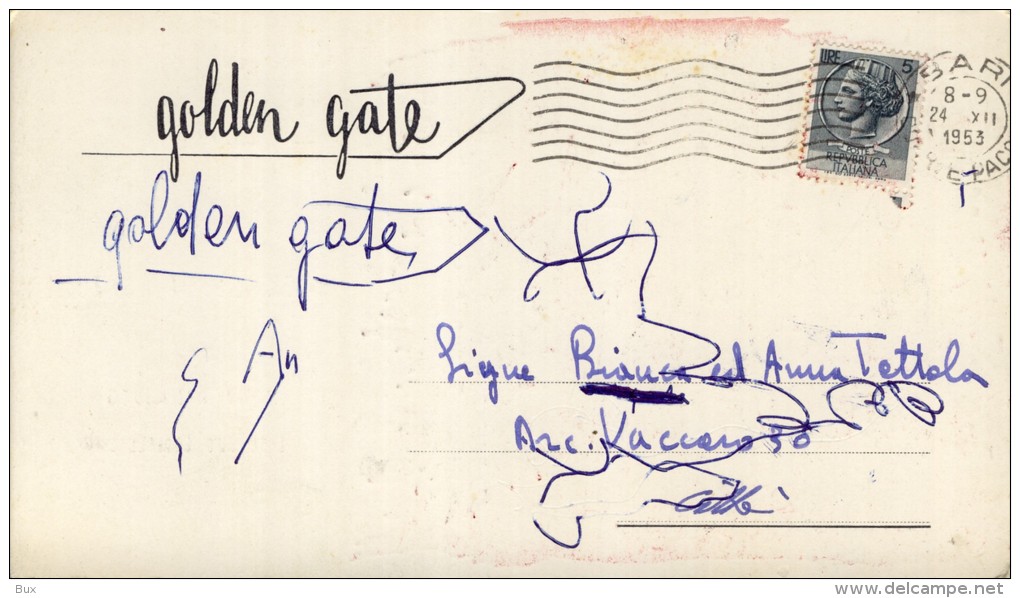 golden gate
golden gate
LIRE 5
BARI
8-9
24 XII
1953
POSTE
REPVBBLICA
ITALIANA
An
Signe Bianca ed Anna Tettola
Arc. Vaccaro 30
Città
Bux
delcampe.net